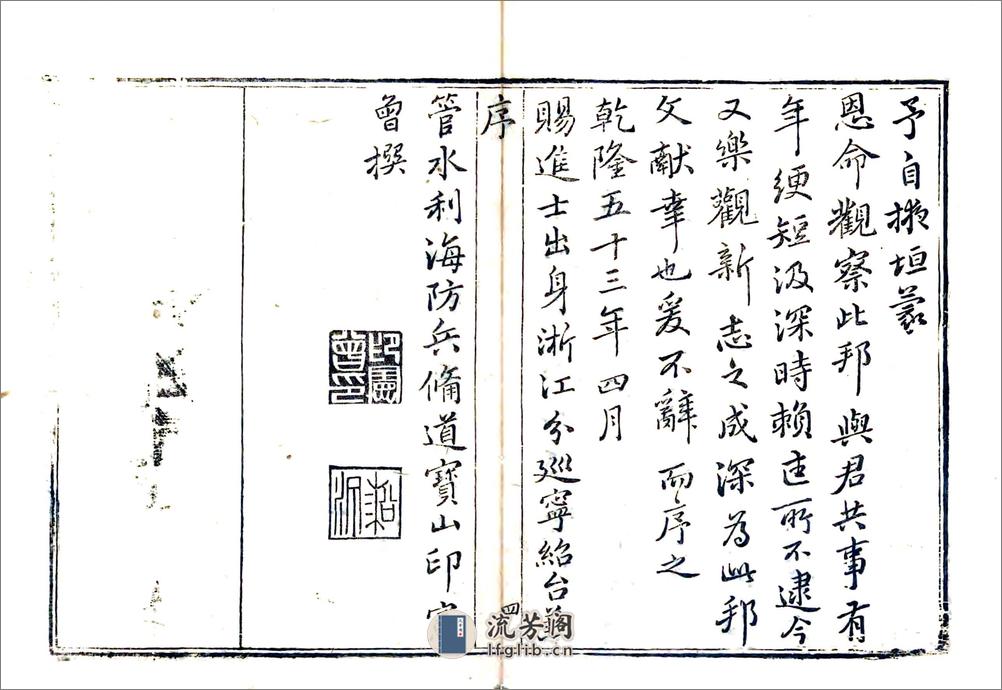 予自掖垣蒙
恩命觀察此邦與君共事有
年綆短汲深時賴匡所不逮今
又樂觀新志之成深為此邦
文献幸也爰不辭而序之
乾隆五十三年四月
賜進士出身浙江分巡寧紹台
序
四
管水利海防兵備道寶山印
曾撰
印憲曾印
流芳阁
lfglib.cn